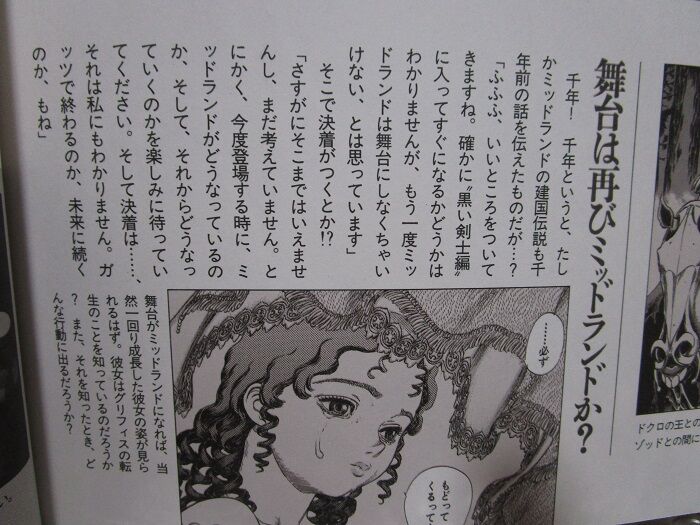 舞台は再びミッドランドか?
千年! 千年というと、たし
かミッドランドの建国伝説も千
年前の話を伝えたものだが…?
「ふふふ、いいところをついて
きますね。確かに〝黒い剣士編〟
に入ってすぐになるかどうかは
わかりませんが、もう一度ミッ
ドランドは舞台にしなくちゃい
けない、とは思っています」
そこで決着がつくとか!?
「さすがにそこまではいえませ
んし、まだ考えていません。と
にかく、今度登場する時に、ミ
ッドランドがどうなっているの
か、そして、それからどうなっ
ていくのかを楽しみに待ってい
てください。そして決着は……、
それは私にもわかりません。ガ
ッツで終わるのか、未来に続く
のか、もね」
ドクロの王との
ゾッドとの間に
……必ず
もどって
くるって
舞台がミッドランドになれば、当
然一回り成長した彼女の姿が見ら
れるはず。彼女はグリフィスの転
生のことを知っているのだろうか
? また、それを知ったとき、ど
んな行動に出るだろうか?